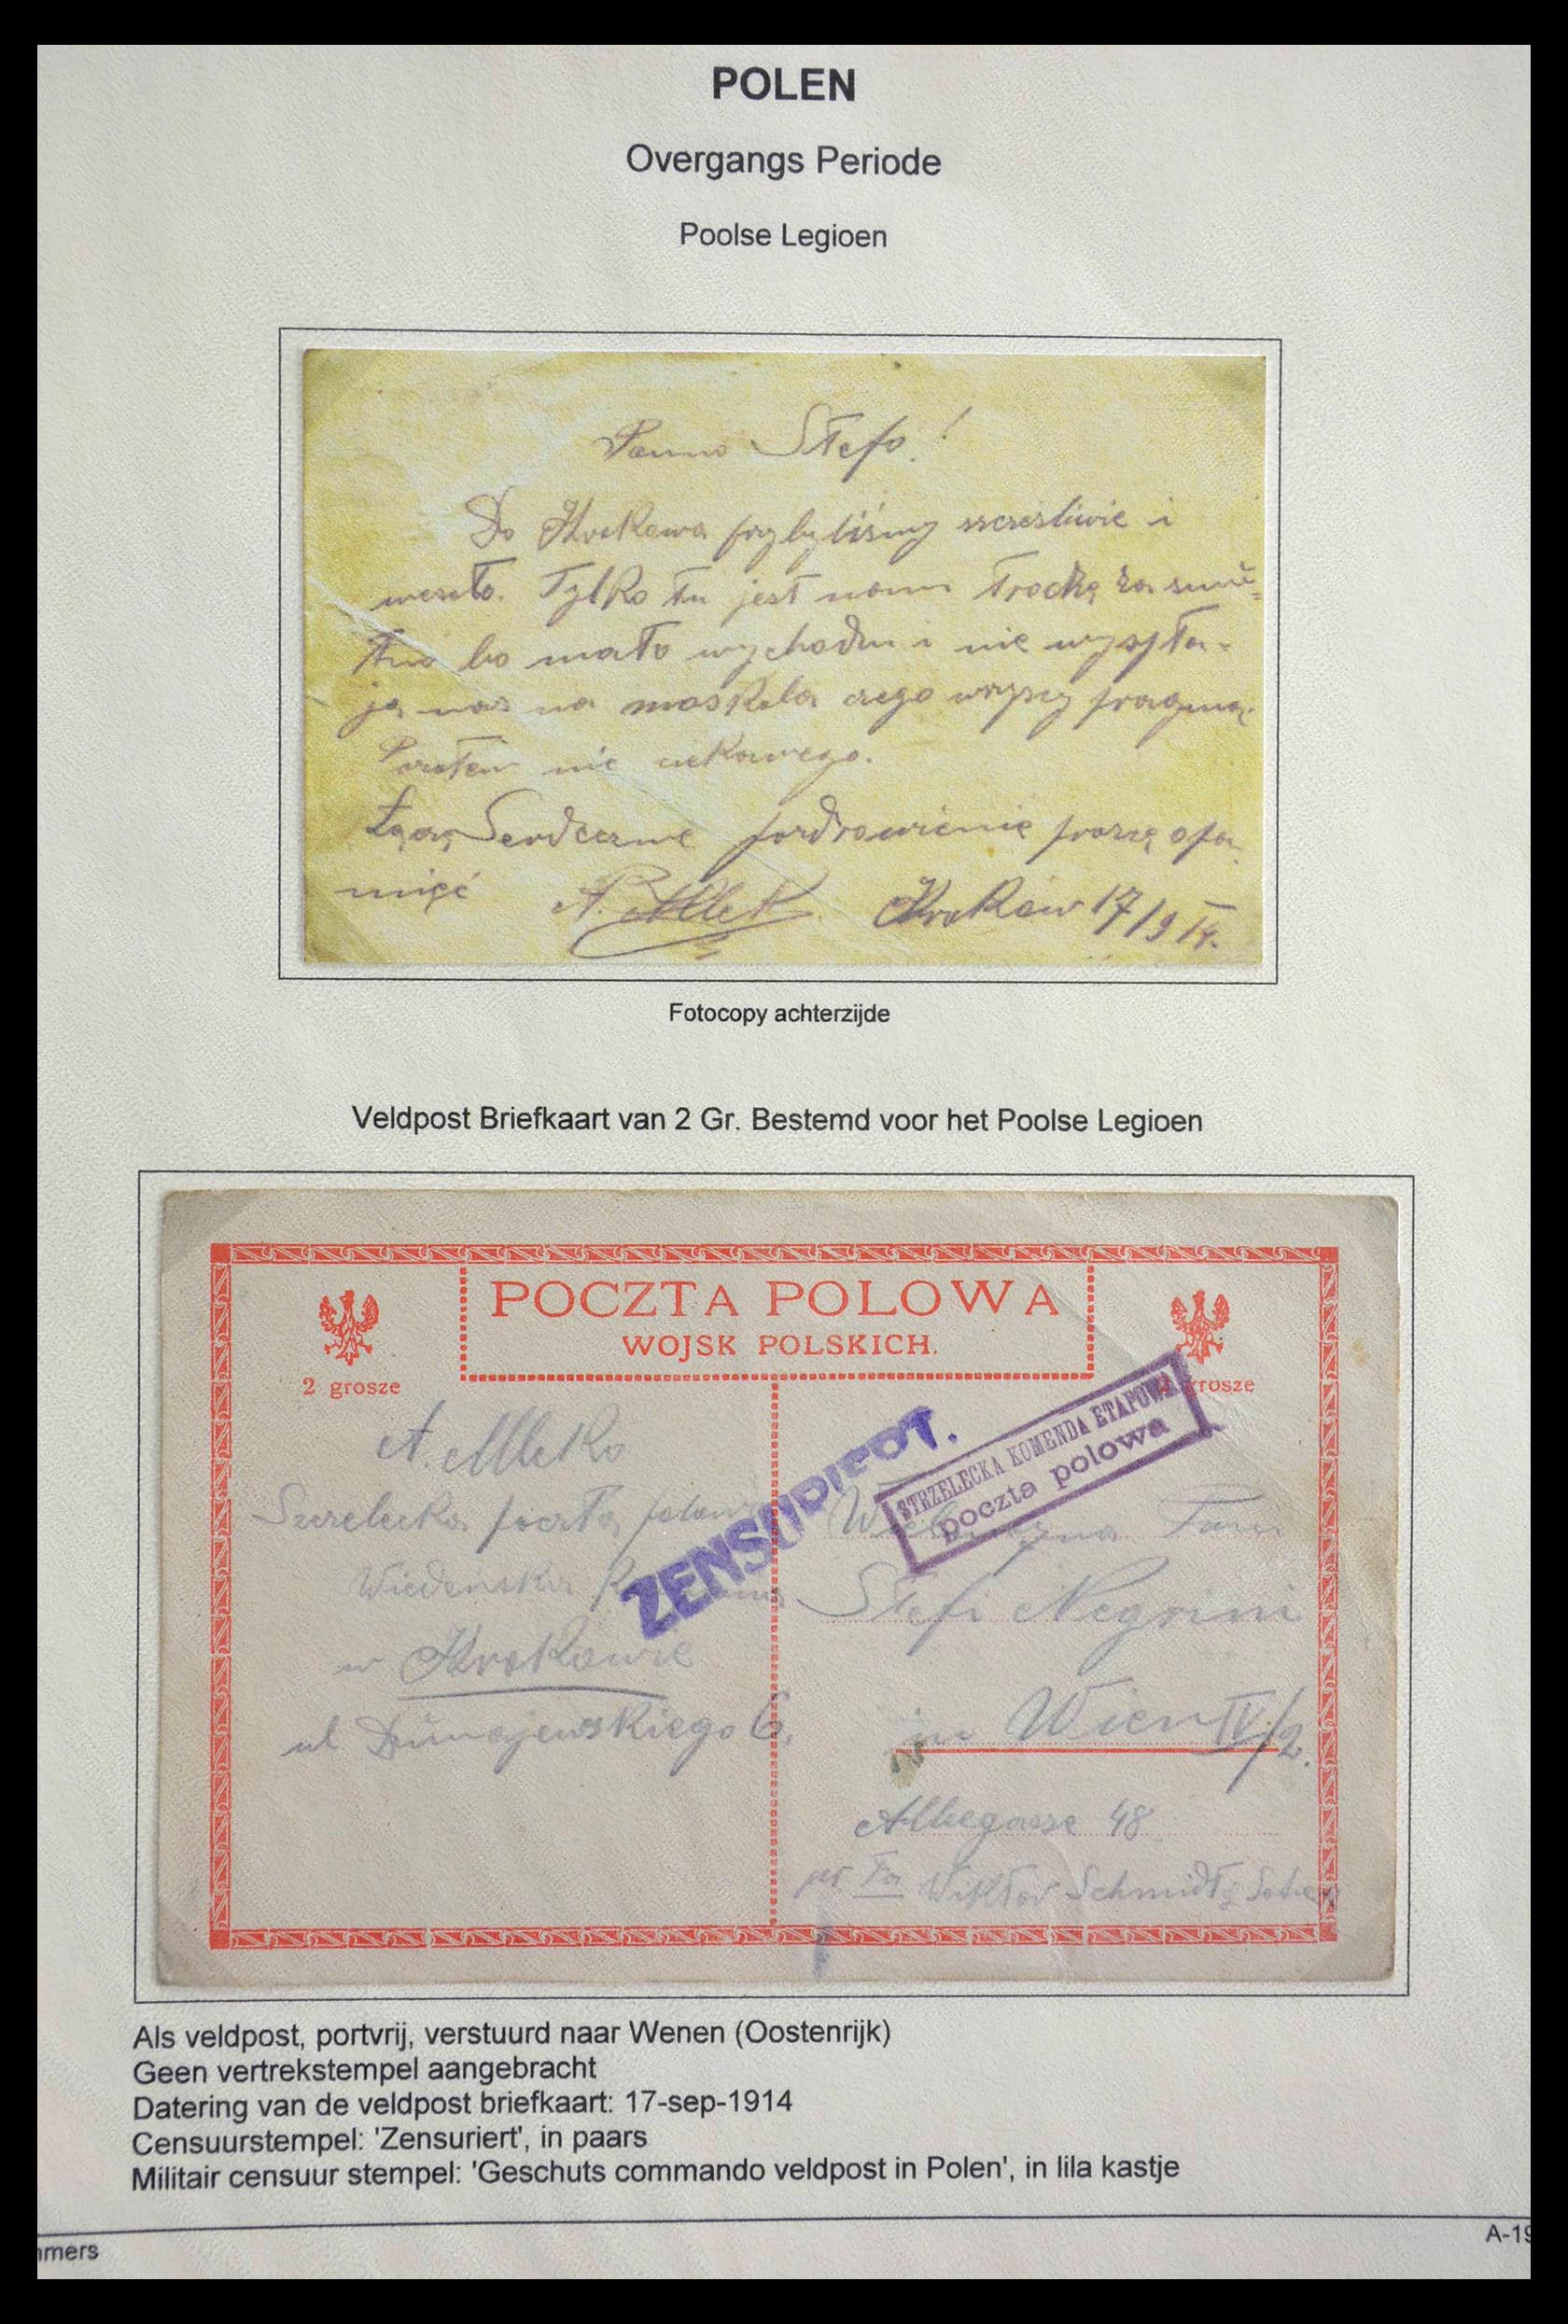 POLEN
Overgangs Periode
Poolse Legioen
Panno Stefo!
Do Krakowa przybyliśmy szczęśliwie i
wesoło. Tylko tu jest nam trochę za smu=
tno bo mało wychodzim i nie wysyła-
ją nas na moskala czego wszyscy pragną.
Pozatem nic ciekawego.
Łączę Serdeczne pozdrowienie proszę o pa
mięć A. Mlek Kraków 17/9 14.
Fotocopy achterzijde
Veldpost Briefkaart van 2 Gr. Bestemd voor het Poolse Legioen
POCZTA POLOWA
WOJSK POLSKICH.
2 grosze
grosze
ZENSURIERT.
STRZELECKA KOMENDA ETAPOWA
poczta polowa
A. Mleko
poczta polowa
Wiedeńska
w Krakowie
ul Dunajewskiego 6.
Wielmożna Panna
Stefi Negrini
in Wien IV/2.
48
pr Fa Wiktor Schmidt &
Als veldpost, portvrij, verstuurd naar Wenen (Oostenrijk)
Geen vertrekstempel aangebracht
Datering van de veldpost briefkaart: 17-sep-1914
Censuurstempel: 'Zensuriert', in paars
Militair censuur stempel: 'Geschuts commando veldpost in Polen', in lila kastje
mmers
A-19